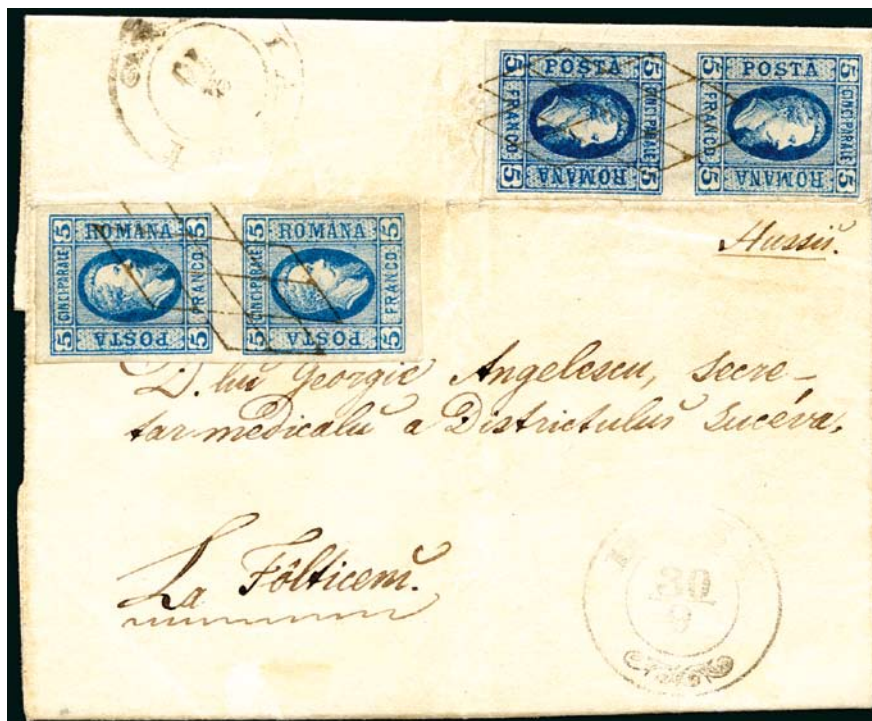 5 POSTA 5
FRANCO
CINCI PARALE
5 ROMANA 5
5 POSTA 5
FRANCO
CINCI PARALE
5 ROMANA 5
Hussii.
5 ROMANA 5
CINCI PARALE
FRANCO
5 POSTA 5
5 ROMANA 5
CINCI PARALE
FRANCO
5 POSTA 5
D. lui Georgie Angelescu, secre-
tar medicalu a Districtului Sucéva,
La Fôlticenĭ.
30
9